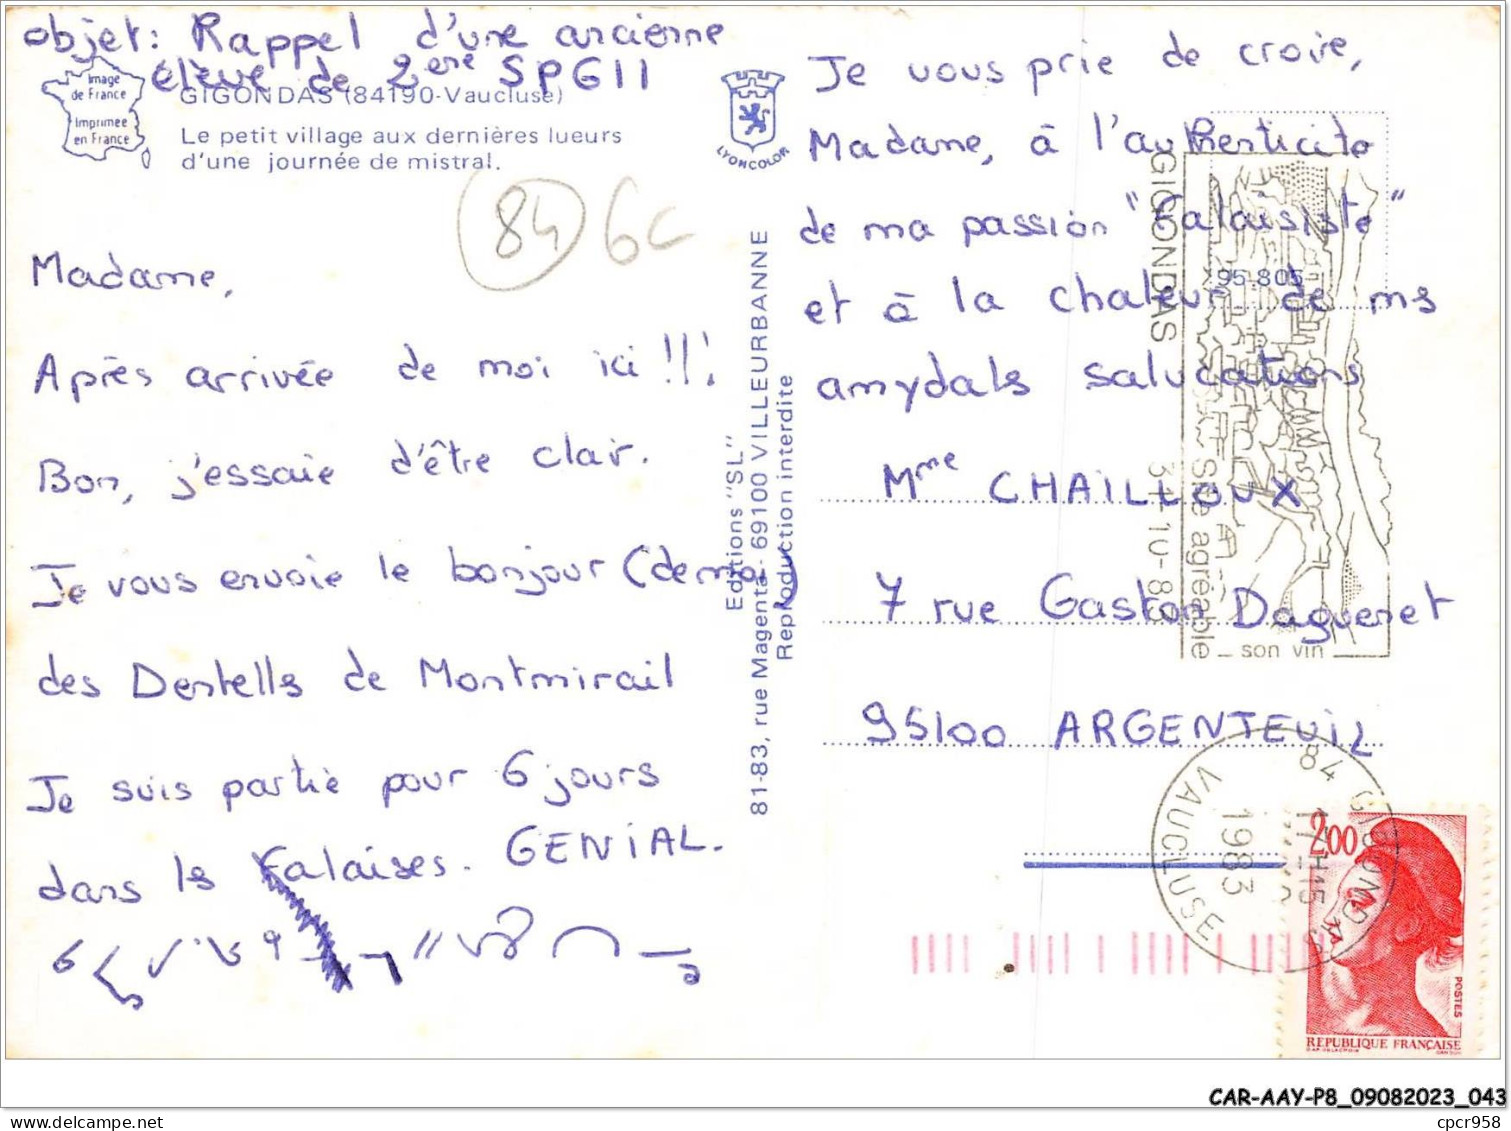 objet: Rappel d'une ancienne
élève de 2ère SPG11
Image
de France
Imprimée
en France
GIGONDAS (84190-Vaucluse)
Le petit village aux dernières lueurs
d'une journée de mistral.
84 6c
Madame,
Après arrivée de moi ici !!!
Bon, j'essaie d'être clair.
Je vous envoie le bonjour (de moi)
des Dentells de Montmirail
Je suis partie pour 6 jours
dans ls Falaises. GENIAL.
LYONCOLOR
Editions "SL"
81-83, rue Magenta - 69100 VILLEURBANNE
Reproduction interdite
Je vous prie de croire,
Madame, à l'authenticite
de ma passion "Falaisiste"
et à la chaleur de ms
amydals salucations
95.805
Mme CHAILLOUX
7 rue Gaston Daguenet
95100 ARGENTEUIL
GIGONDAS
31-10-83
Site agréable
son vin
84 GIGONDAS
1983
VAUCLUSE
2,00
POSTES
REPUBLIQUE FRANÇAISE
CAR-AAY-P8_09082023_043
cpcr958